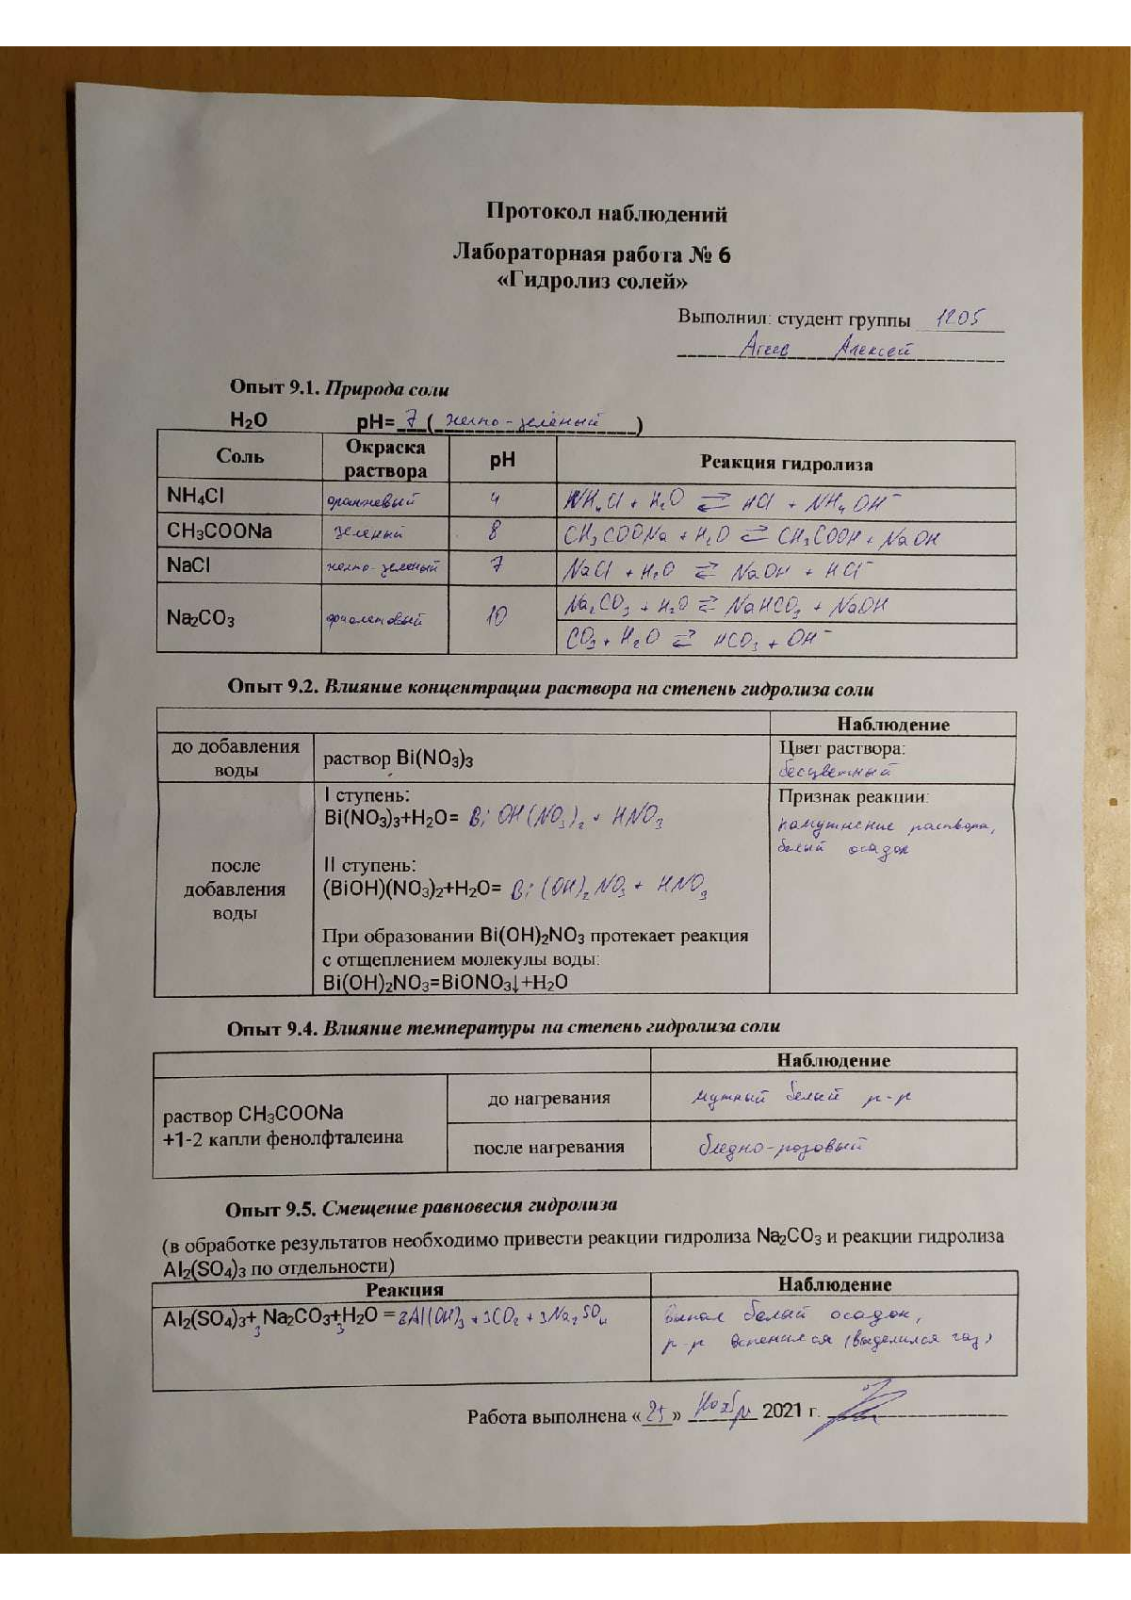 Протокол наблюдений
Лабораторная работа № 6
«Гидролиз солей»
Выполнил: студент группы 1205
Агеев Алексей
Опыт 9.1. Природа соли
H₂O pH= 7 ( желто-зелёный )
Соль Окраска раствора pH Реакция гидролиза
NH₄Cl оранжевый 4 NH₄Cl + H₂O ⇄ HCl + NH₄OH⁻
CH₃COONa зеленый 8 CH₃COONa + H₂O ⇄ CH₃COOH + NaOH
NaCl желто-зеленый 7 NaCl + H₂O ⇄ NaOH + HCl⁻
Na₂CO₃ фиолетовый 10 Na₂CO₃ + H₂O ⇄ NaHCO₃ + NaOH
CO₃ + H₂O ⇄ HCO₃ + OH⁻
Опыт 9.2. Влияние концентрации раствора на степень гидролиза соли
Наблюдение
до добавления воды раствор Bi(NO₃)₃ Цвет раствора:
бесцветный
после добавления воды
I ступень:
Bi(NO₃)₃+H₂O= BiOH(NO₃)₂ + HNO₃
II ступень:
(BiOH)(NO₃)₂+H₂O= Bi(OH)₂NO₃ + HNO₃
При образовании Bi(OH)₂NO₃ протекает реакция
с отщеплением молекулы воды:
Bi(OH)₂NO₃=BiONO₃↓+H₂O
Признак реакции:
помутнение раствора,
белый осадок
Опыт 9.4. Влияние температуры на степень гидролиза соли
Наблюдение
раствор CH₃COONa
+1-2 капли фенолфталеина
до нагревания мутный белый р-р
после нагревания бледно-розовый
Опыт 9.5. Смещение равновесия гидролиза
(в обработке результатов необходимо привести реакции гидролиза Na₂CO₃ и реакции гидролиза
Al₂(SO₄)₃ по отдельности)
Реакция Наблюдение
Al₂(SO₄)₃+3Na₂CO₃+3H₂O = 2Al(OH)₃ + 3CO₂ + 3Na₂SO₄
выпал белый осадок,
р-р вспенился (выделился газ)
Работа выполнена «25» Ноября 2021 г.